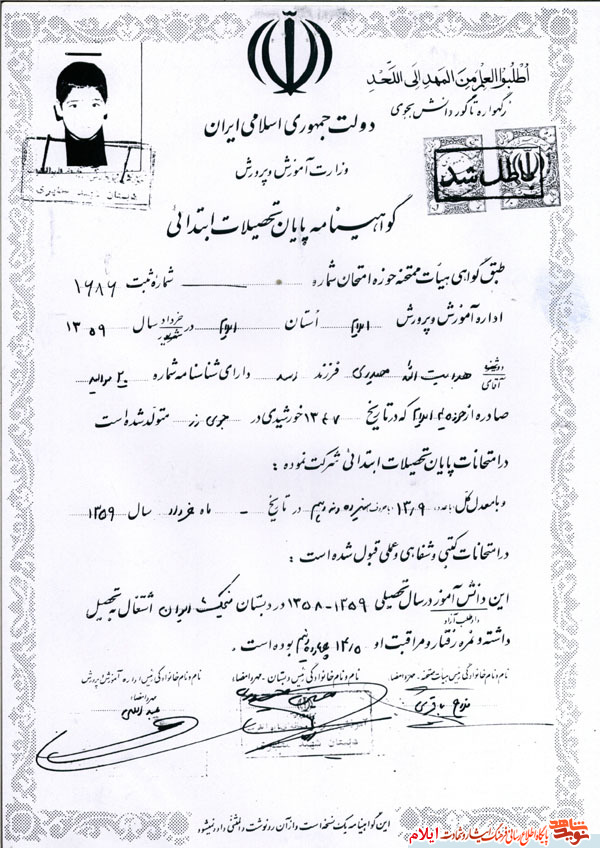 اُطْلُبوا العِلمَ مِنَ المَهدِ اِلَی اللَّحَدِ
زگهواره تا گور دانش بجوی
دولت جمهوری اسلامی ایران
وزارت آموزش و پرورش
باطل شد
گواهینامه پایان تحصیلات ابتدائی
طبق گواهی هیأت ممتحنه حوزه امتحان شماره شمارهٔ ثبت ۱۶۸۶
اداره آموزش و پرورش ایلام اُستان ایلام در خرداد شهریور سال ۱۳۵۹
دوشیزه آقای هدایت الله حیدری فرزند اسد دارای شناسنامه شماره ۲۰ موالید
صادره از حوزه ۴ ایلام که در تاریخ ۱۳۴۷ خورشیدی در جوی زر متولد شده است
در امتحانات پایان تحصیلات ابتدائی شرکت نموده :
و با معدل کل (با عدد) ۱۳/۹ (با حروف) سیزده و نه دهم در تاریخ - ماه خرداد سال ۱۳۵۹
در امتحانات کتبی و شفاهی و عملی قبول شده است :
این دانش آموز در سال تحصیلی ۱۳۵۹-۱۳۵۸ در دبستان ایوان اشتغال به تحصیل
داوطلب آزاد
داشته و نمره رفتار و مراقبت او ۱۴/۵ چهارده و نیم بوده است .
نام و نام خانوادگی رئیس هیأت ممتحنه - مهر و امضاء : نام و نام خانوادگی رئیس دبستان - مهر و امضاء : نام و نام خانوادگی رئیس اداره آموزش و پرورش
مهر و امضاء :
این گواهینامه یک نسخه است و از آن رونوشت و المثنی داده نمیشود
نوید شاهد
پایگاه اطلاع رسانی فرهنگ ایثار و شهادت ایلام